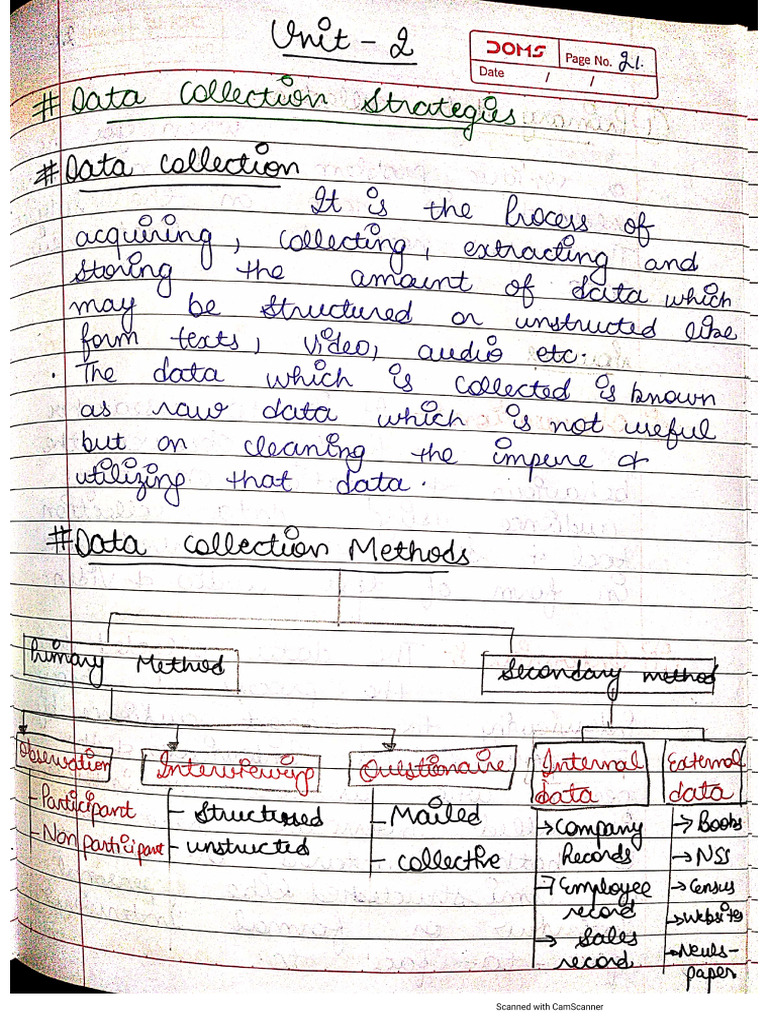 Unit - 2
DOMS
Page No. 21.
Date / /
# Data Collection Strategies
# Data collection
It is the Process of
acquiring, collecting, extracting and
storing the amount of data which
may be structured or unstructed like
form texts, video, audio etc.
. The data which is collected is known
as raw data which is not useful
but on cleaning the impure &
utilizing that data.
# Data collection Methods
Primary Method
Secondary method
Observation
Interviewing
Questionaire
Internal data
External data
- Participant
- Non participant
- Structured
- unstructed
- Mailed
- collective
→ Company
Records
→ Employee
record
→ Sales
record
→ Books
→ NSS
→ Census
→ Websites
→ News-
paper
Scanned with CamScanner